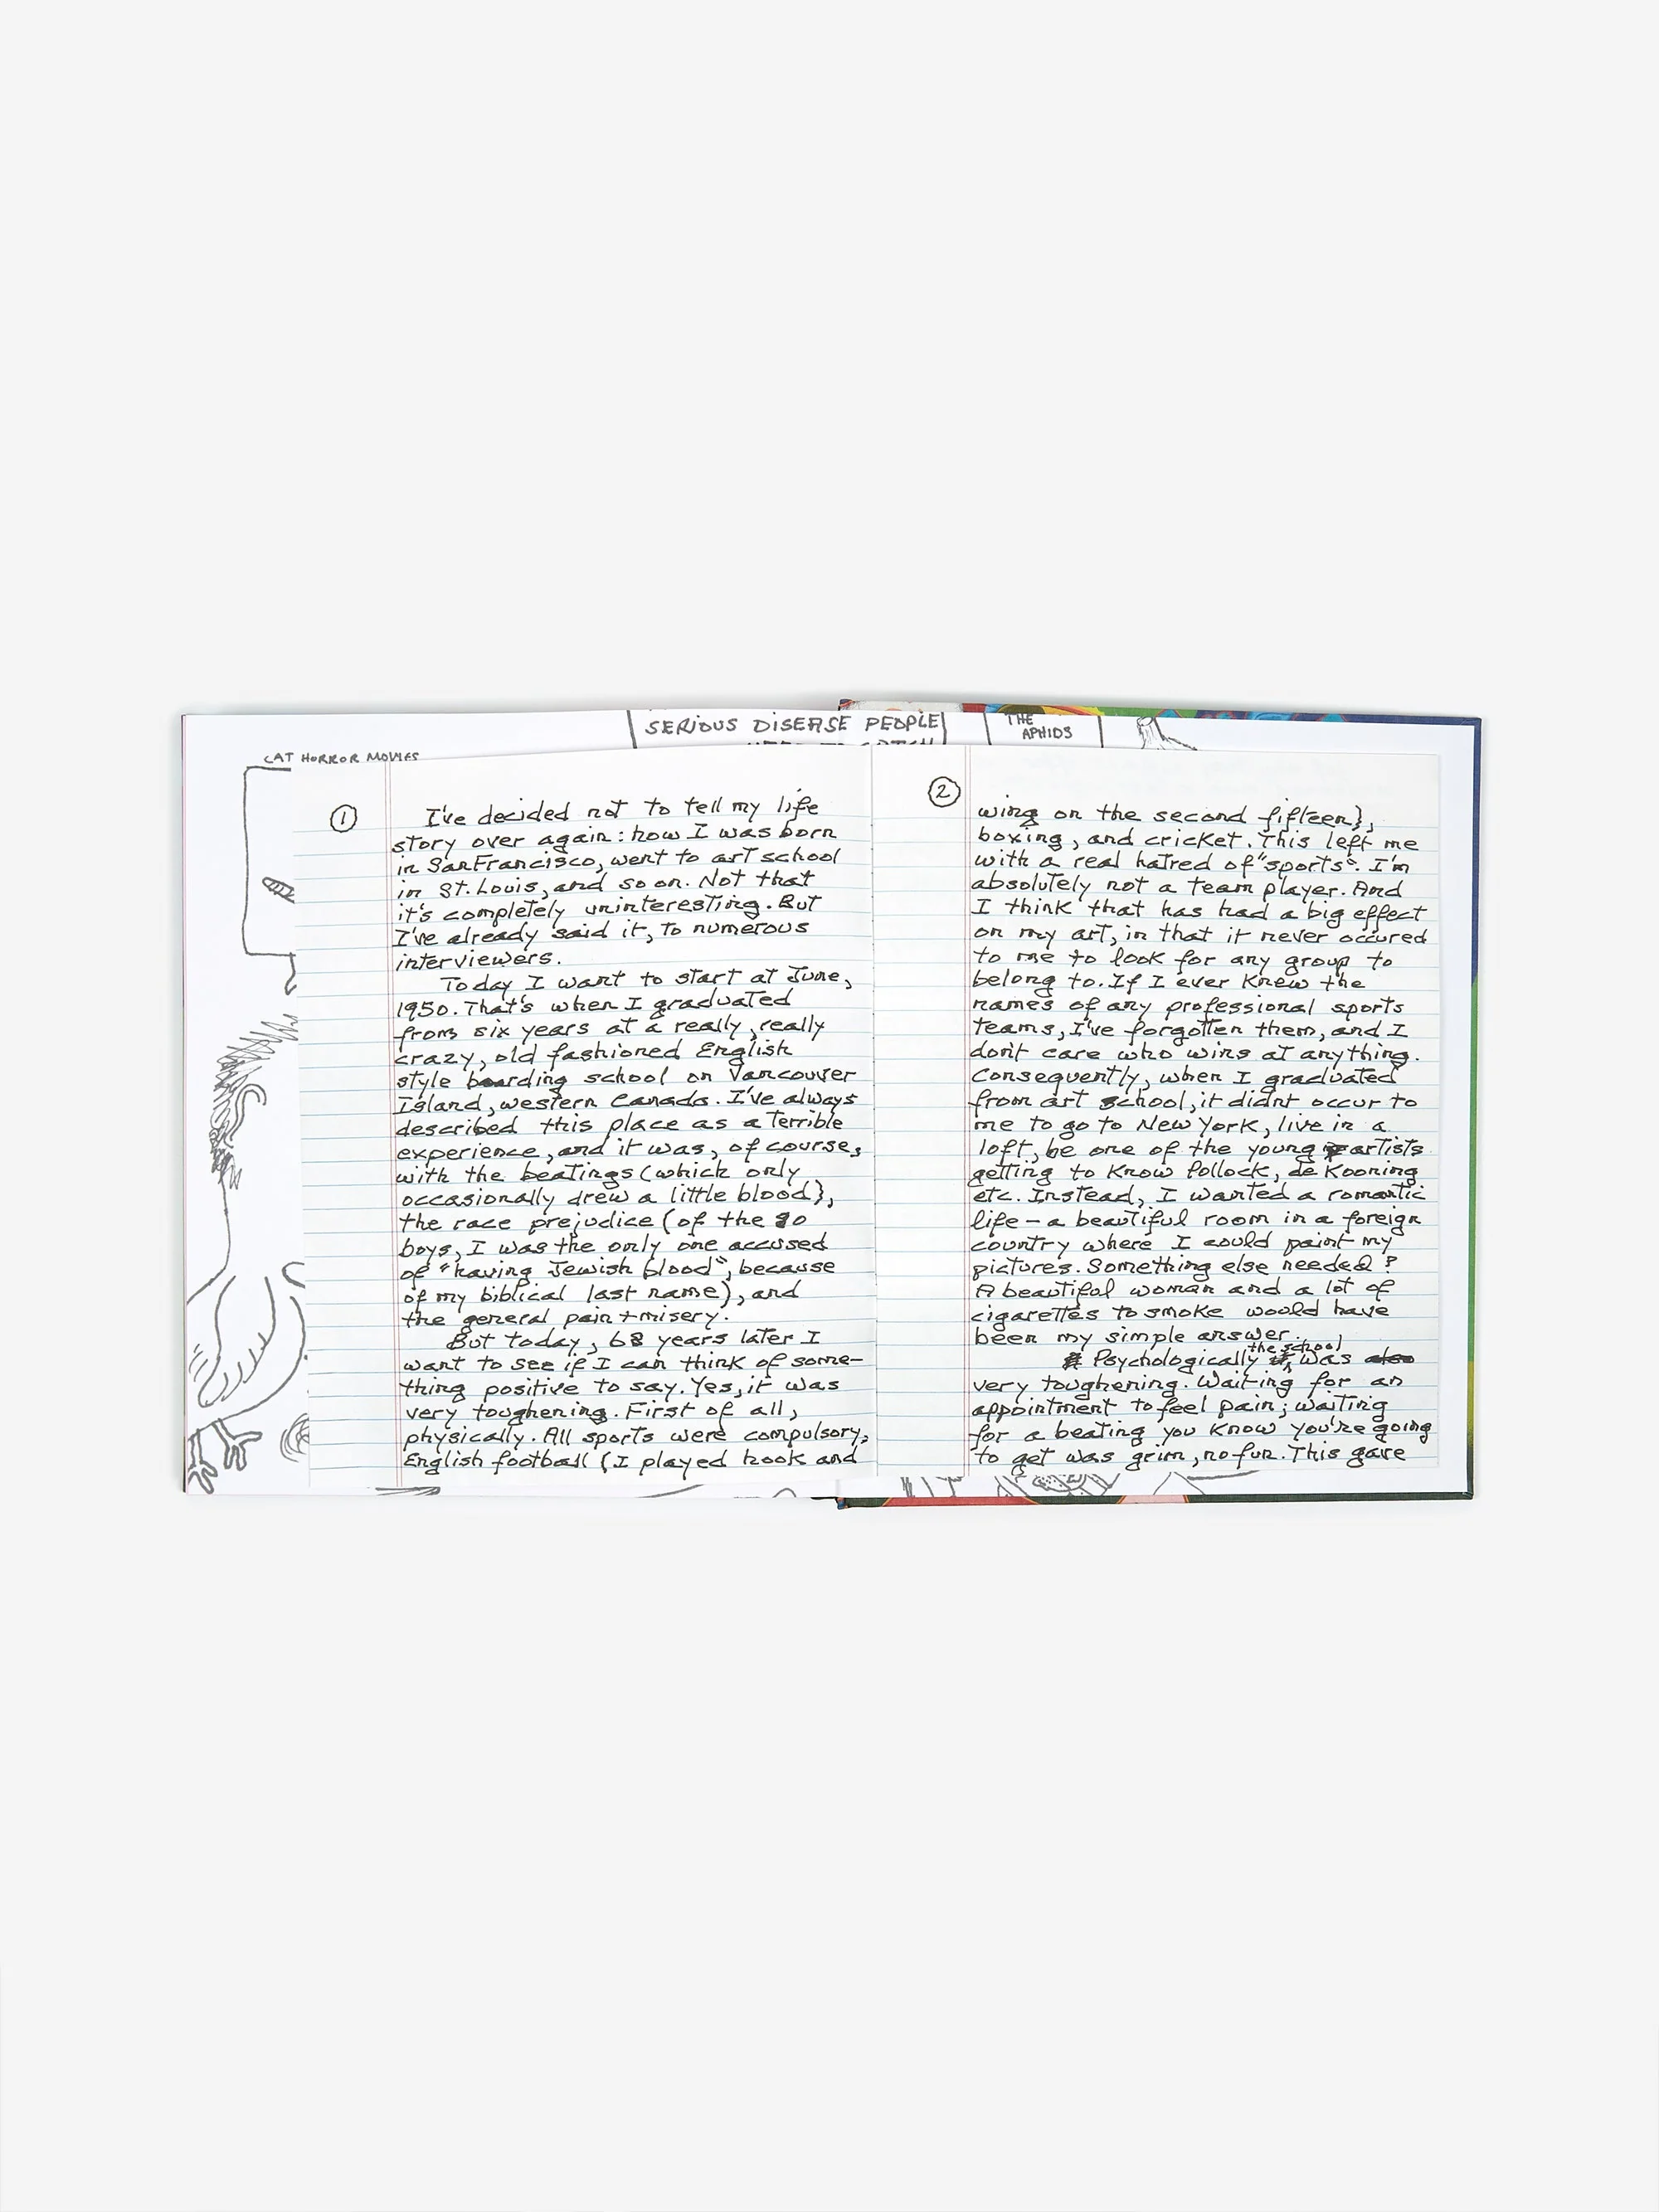 SERIOUS DISEASE PEOPLE
THE
APHIDS
CAT HORROR MOVIES
1
I've decided not to tell my life
story over again: how I was born
in San Francisco, went to art school
in St. Louis, and so on. Not that
it's completely uninteresting. But
I've already said it, to numerous
interviewers.
Today I want to start at June,
1950. That's when I graduated
from six years at a really, really
crazy, old fashioned English
style boarding school on Vancouver
Island, western Canada. I've always
described this place as a terrible
experience, and it was, of course,
with the beatings (which only
occasionally drew a little blood),
the race prejudice (of the 90
boys, I was the only one accused
of "having Jewish blood", because
of my biblical last name), and
the general pain + misery.
But today, 68 years later I
want to see if I can think of some-
thing positive to say. Yes, it was
very toughening. First of all,
physically. All sports were compulsory,
English football (I played hook and
2
wing on the second fifteen),
boxing, and cricket. This left me
with a real hatred of "sports". I'm
absolutely not a team player. And
I think that has had a big effect
on my art, in that it never occured
to me to look for any group to
belong to. If I ever knew the
names of any professional sports
teams, I've forgotten them, and I
don't care who wins at anything.
Consequently, when I graduated
from art school, it didnt occur to
me to go to New York, live in a
loft, be one of the young artists
getting to know Pollock, de Kooning
etc. Instead, I wanted a romantic
life - a beautiful room in a foreign
country where I could paint my
pictures. Something else needed?
A beautiful woman and a lot of
cigarettes to smoke would have
been my simple answer.
Psychologically the school was
very toughening. Waiting for an
appointment to feel pain; waiting
for a beating you know you're going
to get was grim, no fun. This gave